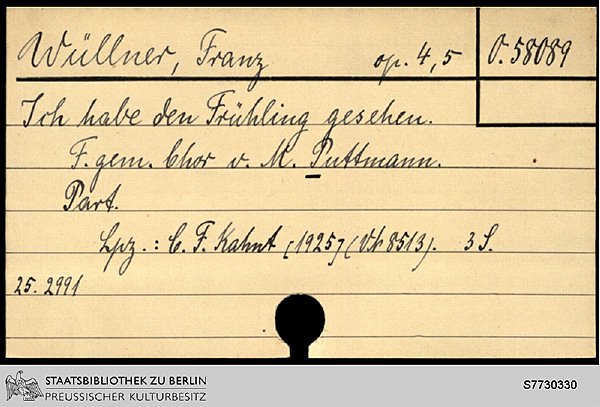 Wüllner, Franz op. 4,5 O. 58089
Ich habe den Frühling gesehen.
F. gem. Chor v. M. Puttmann.
Part.
Lpz.: C. F. Kahnt (1925) (VN 8513). 3 S.
25. 2991
STAATSBIBLIOTHEK ZU BERLIN
PREUSSISCHER KULTURBESITZ
S7730330